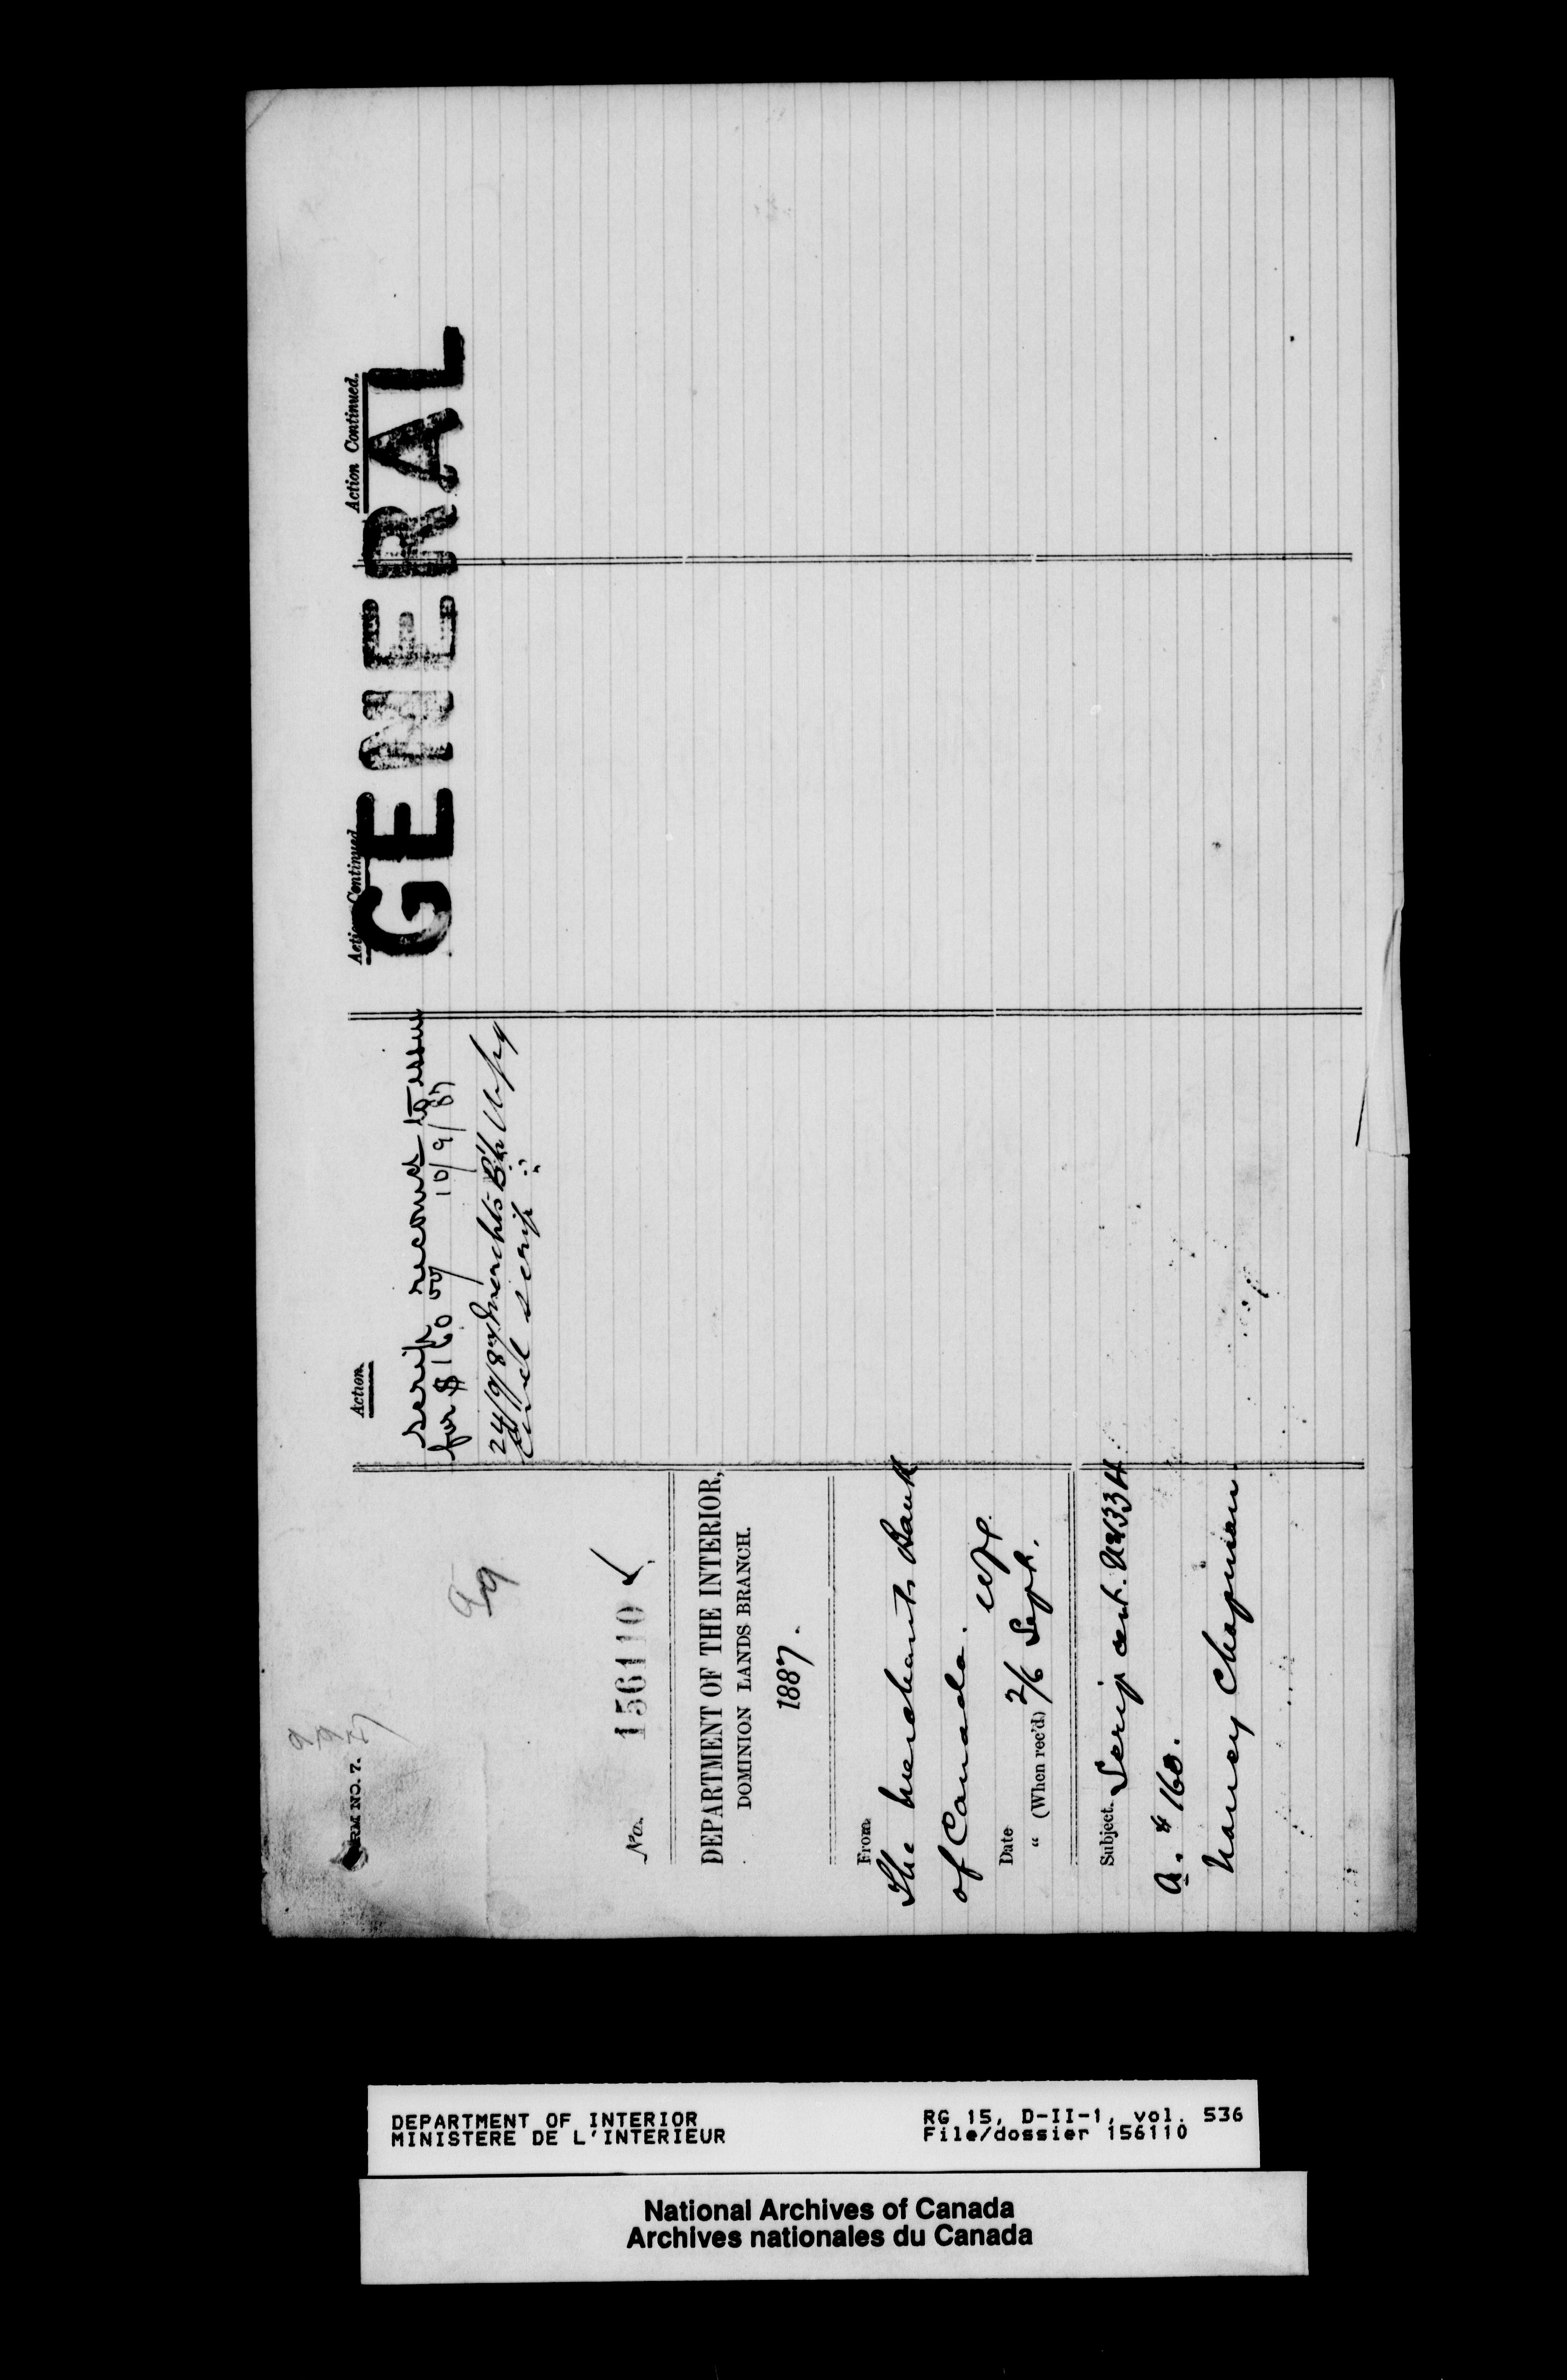 FORM NO. 7.
No. 156110
DEPARTMENT OF THE INTERIOR,
DOMINION LANDS BRANCH.
1887.
From
The Merchants Bank
of Canada. Wpg.
Date
" (When rec'd) 2/6 Sept.
Subject. Scrip cert.
A. $160.
Nancy Chapman
Action.
Scrip recomd to issue
for $160 00 10/9/87
24/9/87 Merchts B'k Wpg
encl scrip
Action Continued.
Action Continued.
GENERAL
DEPARTMENT OF INTERIOR
MINISTERE DE L'INTERIEUR
RG 15, D-II-1, vol. 536
File/dossier 156110
National Archives of Canada
Archives nationales du Canada